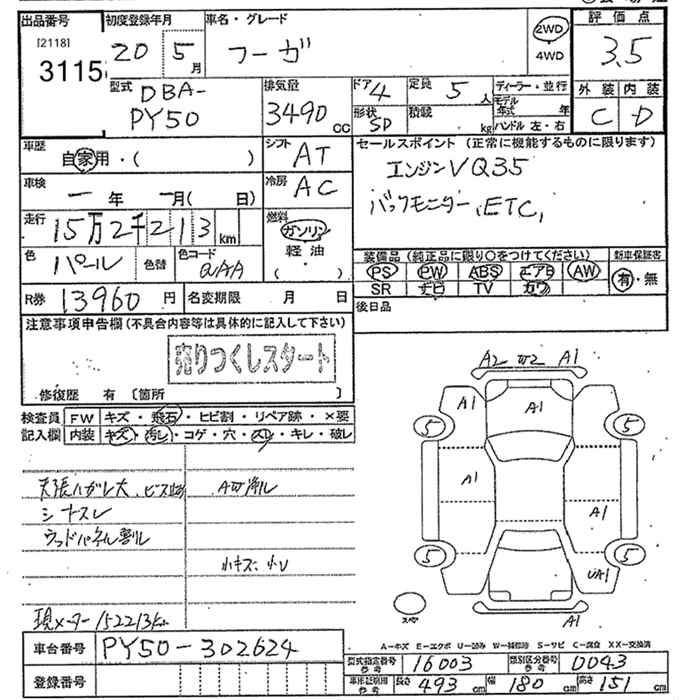 出品番号 初度登録年月 車名・グレード 2WD 4WD 評価点
[2118]
3115 20 5月 フーガ 3.5
型式 DBA-PY50 排気量 3490 CC ドア 4 形状 SD 定員 5人 積載 kg ディーラー・並行 モデル年式 年 ハンドル 左・右 外装 C 内装 D
車歴 自家用・( ) シフト AT
セールスポイント (正常に機能するものに限ります)
エンジンVQ35
バックモニター, ETC,
車検 一年 一月( 日) 冷房 AC
走行 15万2千213km 燃料 ガソリン 軽油 ( )
色 パール 色替 色コード QAA
装備品 (純正品に限り〇をつけてください) 新車保証書
PS PW ABS エアB AW 有・無
SR ナビ TV カワ
R券 13960円 名変期限 月 日 後日品
注意事項申告欄 (不具合内容等は具体的に記入して下さい)
売りつくしスタート
修復歴 有 〔箇所 〕
検査員記入欄 FW キズ・飛石・ヒビ割・リペア跡・×要
内装 キズ・汚レ・コゲ・穴・スレ・キレ・破レ
天張ハガレ大、ビス
シートスレ
ウッドパネル割れ
小キズ、小U
現メーター 152213km
A2 W2 A1
A1 A1
5 5
A1 A1
5 5
UA1
スペア A1
車台番号 PY50-302624
登録番号
A-キズ E-エクボ U-凹み W-補修跡 S-サビ C-腐食 XX-交換済
型式指定番号 参考 16003 類別区分番号 参考 0043
車庫証明用 参考 長さ 493cm 幅 180cm 高さ 151cm